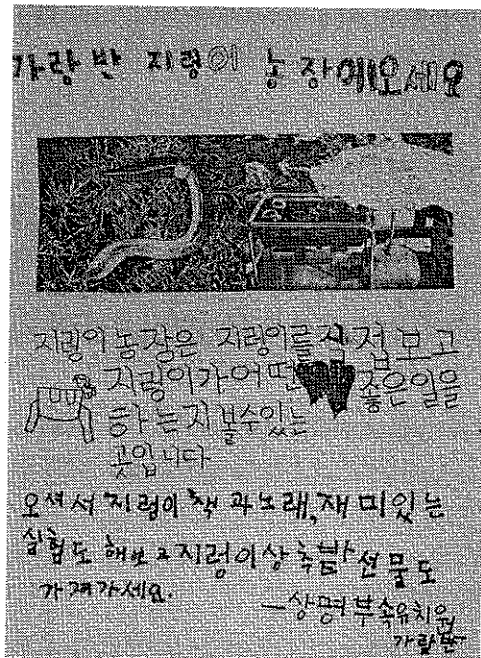 가랑반 지렁이 농장에오세요
지렁이 농장은 지렁이를 직접 보고
지렁이가 어떤 좋은일을
하는지 볼수있는
곳입니다
오셔서 지렁이 책과 노래, 재미있는
실험도 해보고 지렁이상추밭 선물도
가져가세요.
-상평부속유치원
가랑반-